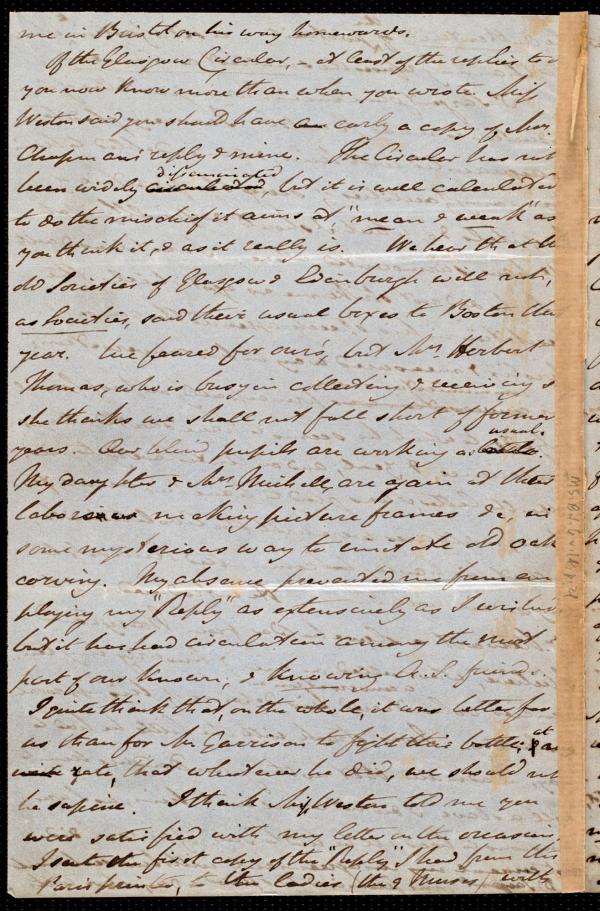 me in Bristol on his way homewards.
Of the Glasgow Circular, - at least of the replies to it
you now know more than when you wrote. Miss
Weston said you should have an early a copy of Mrs.
Chapman's reply & mine. The Circular has not
been widely disseminated circulated, but it is well calculated
to do the mischief it aims at "mean & weak" as
you think it, & as it really is. We hear that the
old Societies of Glasgow & Edinburgh will not,
as Societies, send their usual boxes to Boston this
year. We feared for ours, but Mrs. Herbert
Thomas, who is busy in collecting & receiving
she thinks we shall not fall short of former
years. Our blind pupils are working as usual.
My daughter & Mrs. Michell, are again at their
labors making picture frames &c, in
some mysterious way to imitate old oak
carving. My absence prevented me from em
ploying my "Reply" as extensively as I wished
but it has had circulation among the most
part of our known, & knowing A.S. friends.
I quite think that, on the whole, it was better for
us than for Mr. Garrison to fight this battle, at
rate, that whatever he did, we should not
be supine. I think Miss Weston told me you
were satisfied with my letter on the occasion
I sent the first copy of the "Reply" I had from the
Paris printer, to the ladies (the 9 Muses) with
Ms.B.1.6